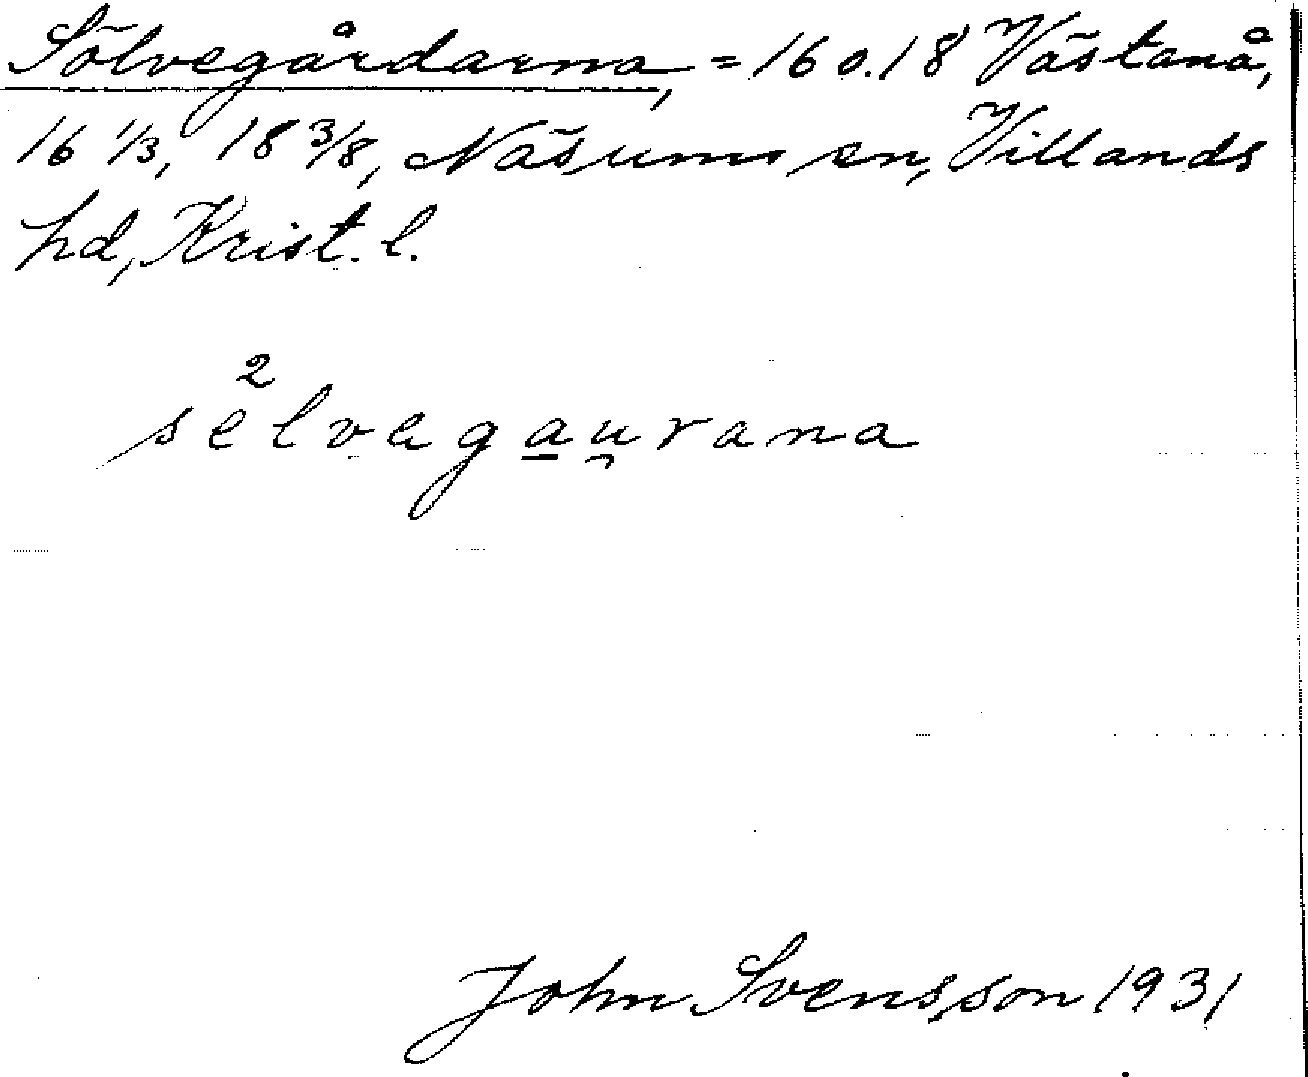 Sölvegårdarna, = 16 o. 18 Västanå,
16 1/3, 18 3/8, Näsums sn, Villands
hd, Krist. l.
2
sëlvagau̯rana
John Svensson 1931